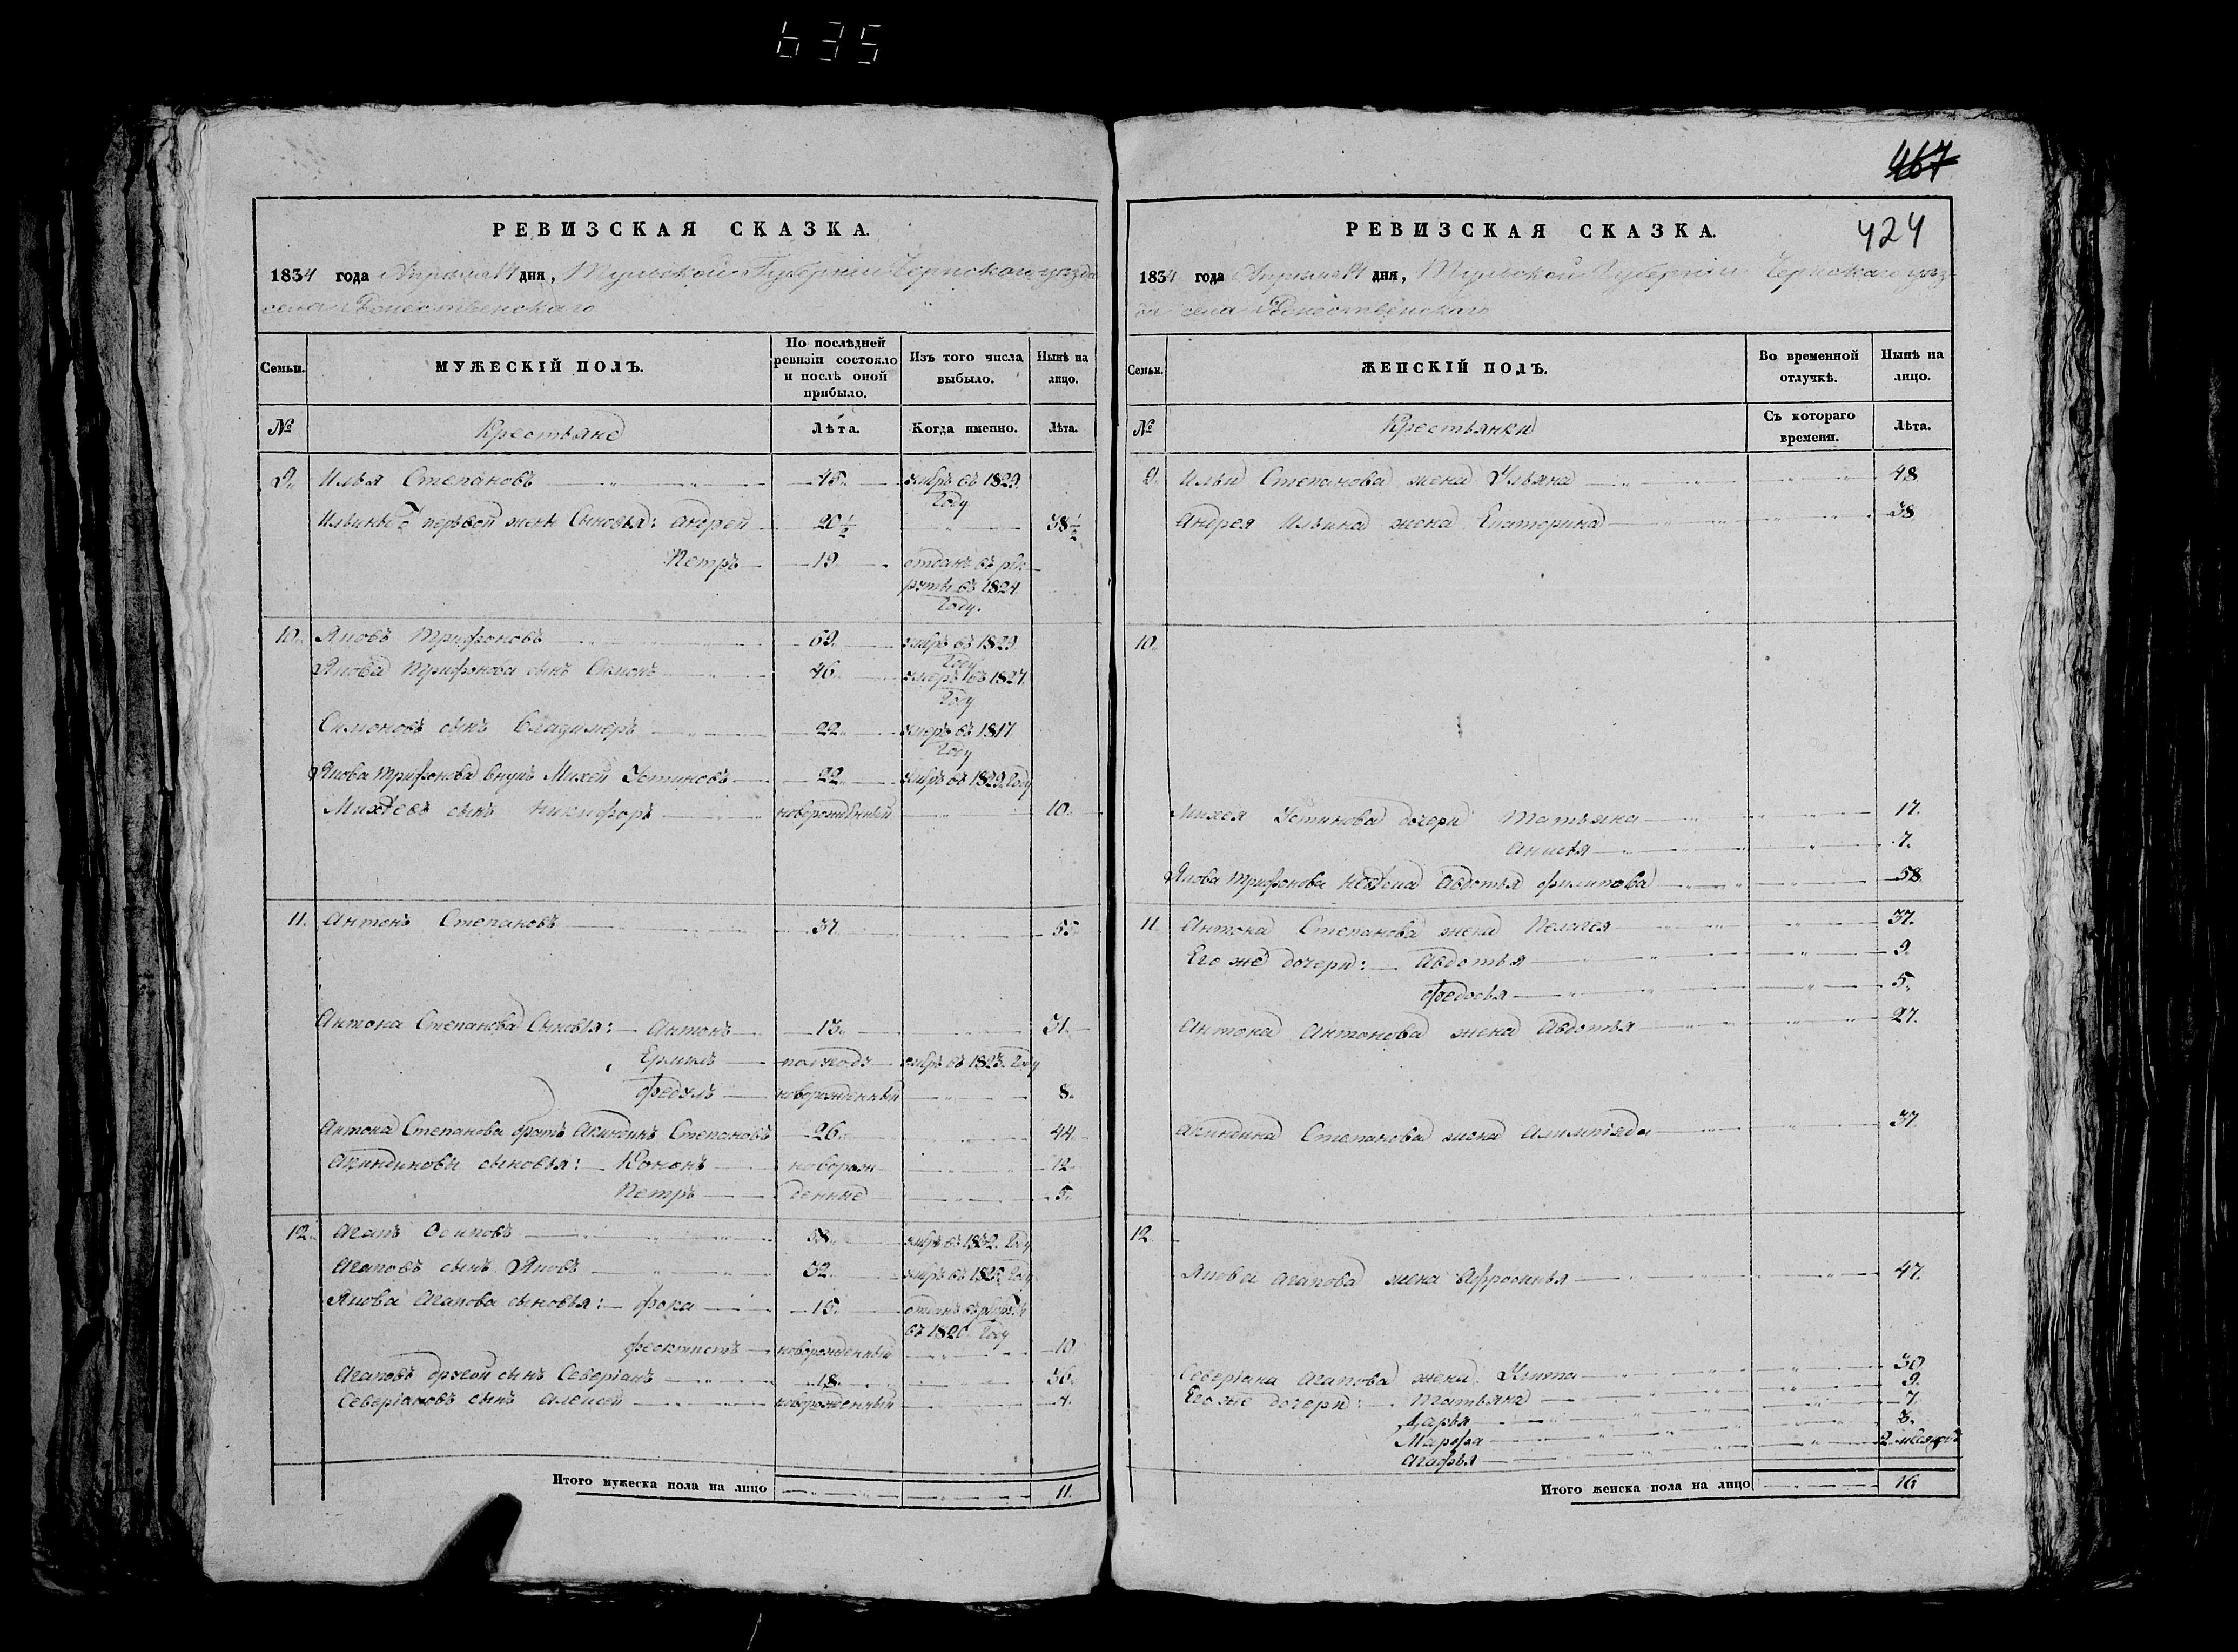 635
467
РЕВИЗСКАЯ СКАЗКА.
1834 года Апреля 14 дня, Тульской Губерніи Чернскаго уезда
села Рожественскаго
Семьи.
МУЖЕСКІЙ ПОЛЪ.
По послѣдней ревизіи состояло и послѣ оной прибыло.
Изъ того числа выбыло.
Нынѣ на лицо.
№
Крестьяне
Лѣта.
Когда именно.
Лѣта.
9. Илья Степановъ 45. умръ въ 1829. Году
Ильины съ первой жены Сыновья: Андрей 20½ 38½
Петръ 19. отданъ въ рекруты въ 1824 Году.
10. Яковъ Трифоновъ 69. умръ въ 1829 Году
Якова Трифонова сынъ Симонъ 46. умеръ въ 1827. Году
Симоновъ сынъ Владимеръ 22. умеръ въ 1817 Году
Якова Трифонова внукъ Михей Устиновъ 22. умръ въ 1829. Году
Михѣевъ сынъ Никифоръ новорожденный 10.
11. Антонъ Степановъ 37. 55.
Антона Степанова Сыновья: Антонъ 13. 31.
Ермилъ полгода умръ въ 1823. Году
Федулъ новорожденный 8.
Антона Степанова братъ Акиндинъ Степановъ 26. 44.
Акиндиновы сыновья: Кононъ новорож 12.
Петръ денные 5.
12. Агапъ Осиповъ 58. умръ въ 1832. Году
Агаповъ сынъ Яковъ 32. умръ въ 1825. Году
Якова Агапова сыновья: Фока 15. отданъ въ рекруты
въ 1820. Году
Феоктистъ новорожденный 10
Агаповъ другой сынъ Северіанъ 18. 36.
Северіановъ сынъ Алексей новорожденный 4.
Итого мужеска пола на лицо 11.
РЕВИЗСКАЯ СКАЗКА.
424
1834 года Апреля 14 дня, Тульской Губерніи Чернскаго уез-
да села Рожественскаго
Семьи.
ЖЕНСКІЙ ПОЛЪ.
Во временной отлучкѣ.
Нынѣ на лицо.
№
Крестьянки
Съ котораго времени.
Лѣта.
9. Ильи Степанова жена Ульяна 48
Андрея Ильина жена Екатерина 38
10.
Михея Устинова дочери Татьяна 17.
Анисья 7.
Якова Трифонова Авдотья Филипова 58
11. Антона Степанова жена Пелагея 37.
Его же дочери: Авдотья 9.
Федосья 5.
Антона Антонова жена Авдотья 27.
Акиндина Степанова жена Алимпіяда 37.
12.
Якова Агапова жена Афросинья 47.
Северіана Агапова жена Улита 30
Его же дочери: Татьяна 9.
Дарья 7
Марфа 3.
Агафья 2 месяцовъ
Итого женска пола на лицо 16